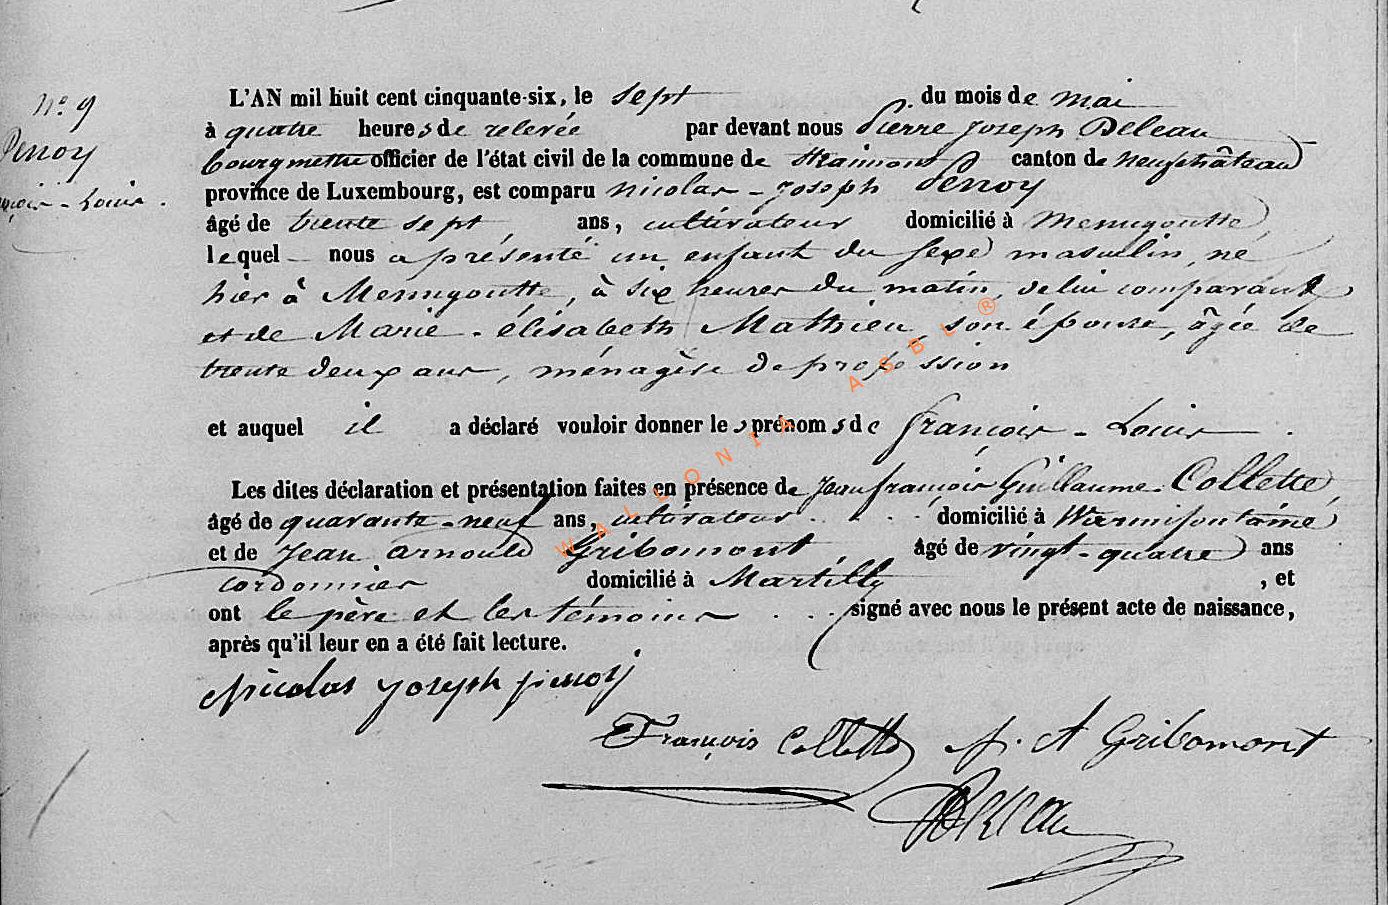 N° 9
Pierroy
François-Louis.
L'AN mil huit cent cinquante-six, le sept du mois de mai
à quatre heures de relevée par devant nous Pierre Joseph Deleau
bourgmestre officier de l'état civil de la commune de Straimont canton de neufchâteau
province de Luxembourg, est comparu nicolas-Joseph Pierroy
âgé de trente sept ans, cultivateur domicilié à Menugoutte,
lequel nous a présenté un enfant du sexe masculin, né
hier à Menugoutte, à six heures du matin, de lui comparant
et de Marie-élisabeth Mathieu son épouse, âgée de
trente deux ans, ménagère de profession
et auquel il a déclaré vouloir donner les prénoms de françois-Louis.
Les dites déclaration et présentation faites en présence de Jean françois Guillaume Collette,
âgé de quarante-neuf ans, cultivateur domicilié à Warmifontaine
et de Jean arnould Gribomont, âgé de vingt-quatre ans
cordonnier domicilié à Martilly, et
ont le père et les témoins signé avec nous le présent acte de naissance,
après qu'il leur en a été fait lecture.
Nicolas joseph pierroy
François Collette j. A Gribomont
Deleau
WALLONIA ASBL ®